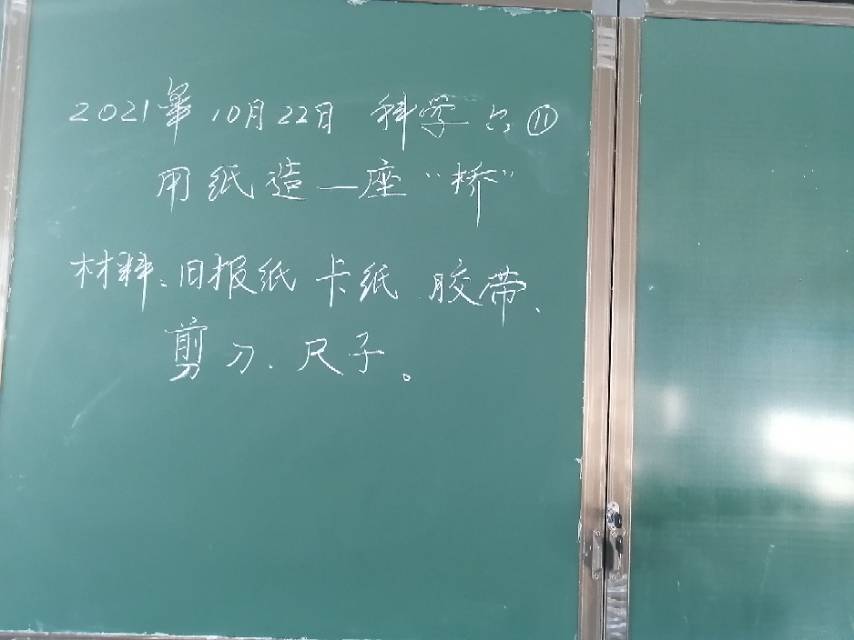 2021年10月22日 科学 六⑪
用纸造一座“桥”
材料:旧报纸 卡纸 胶带、
剪刀、尺子。